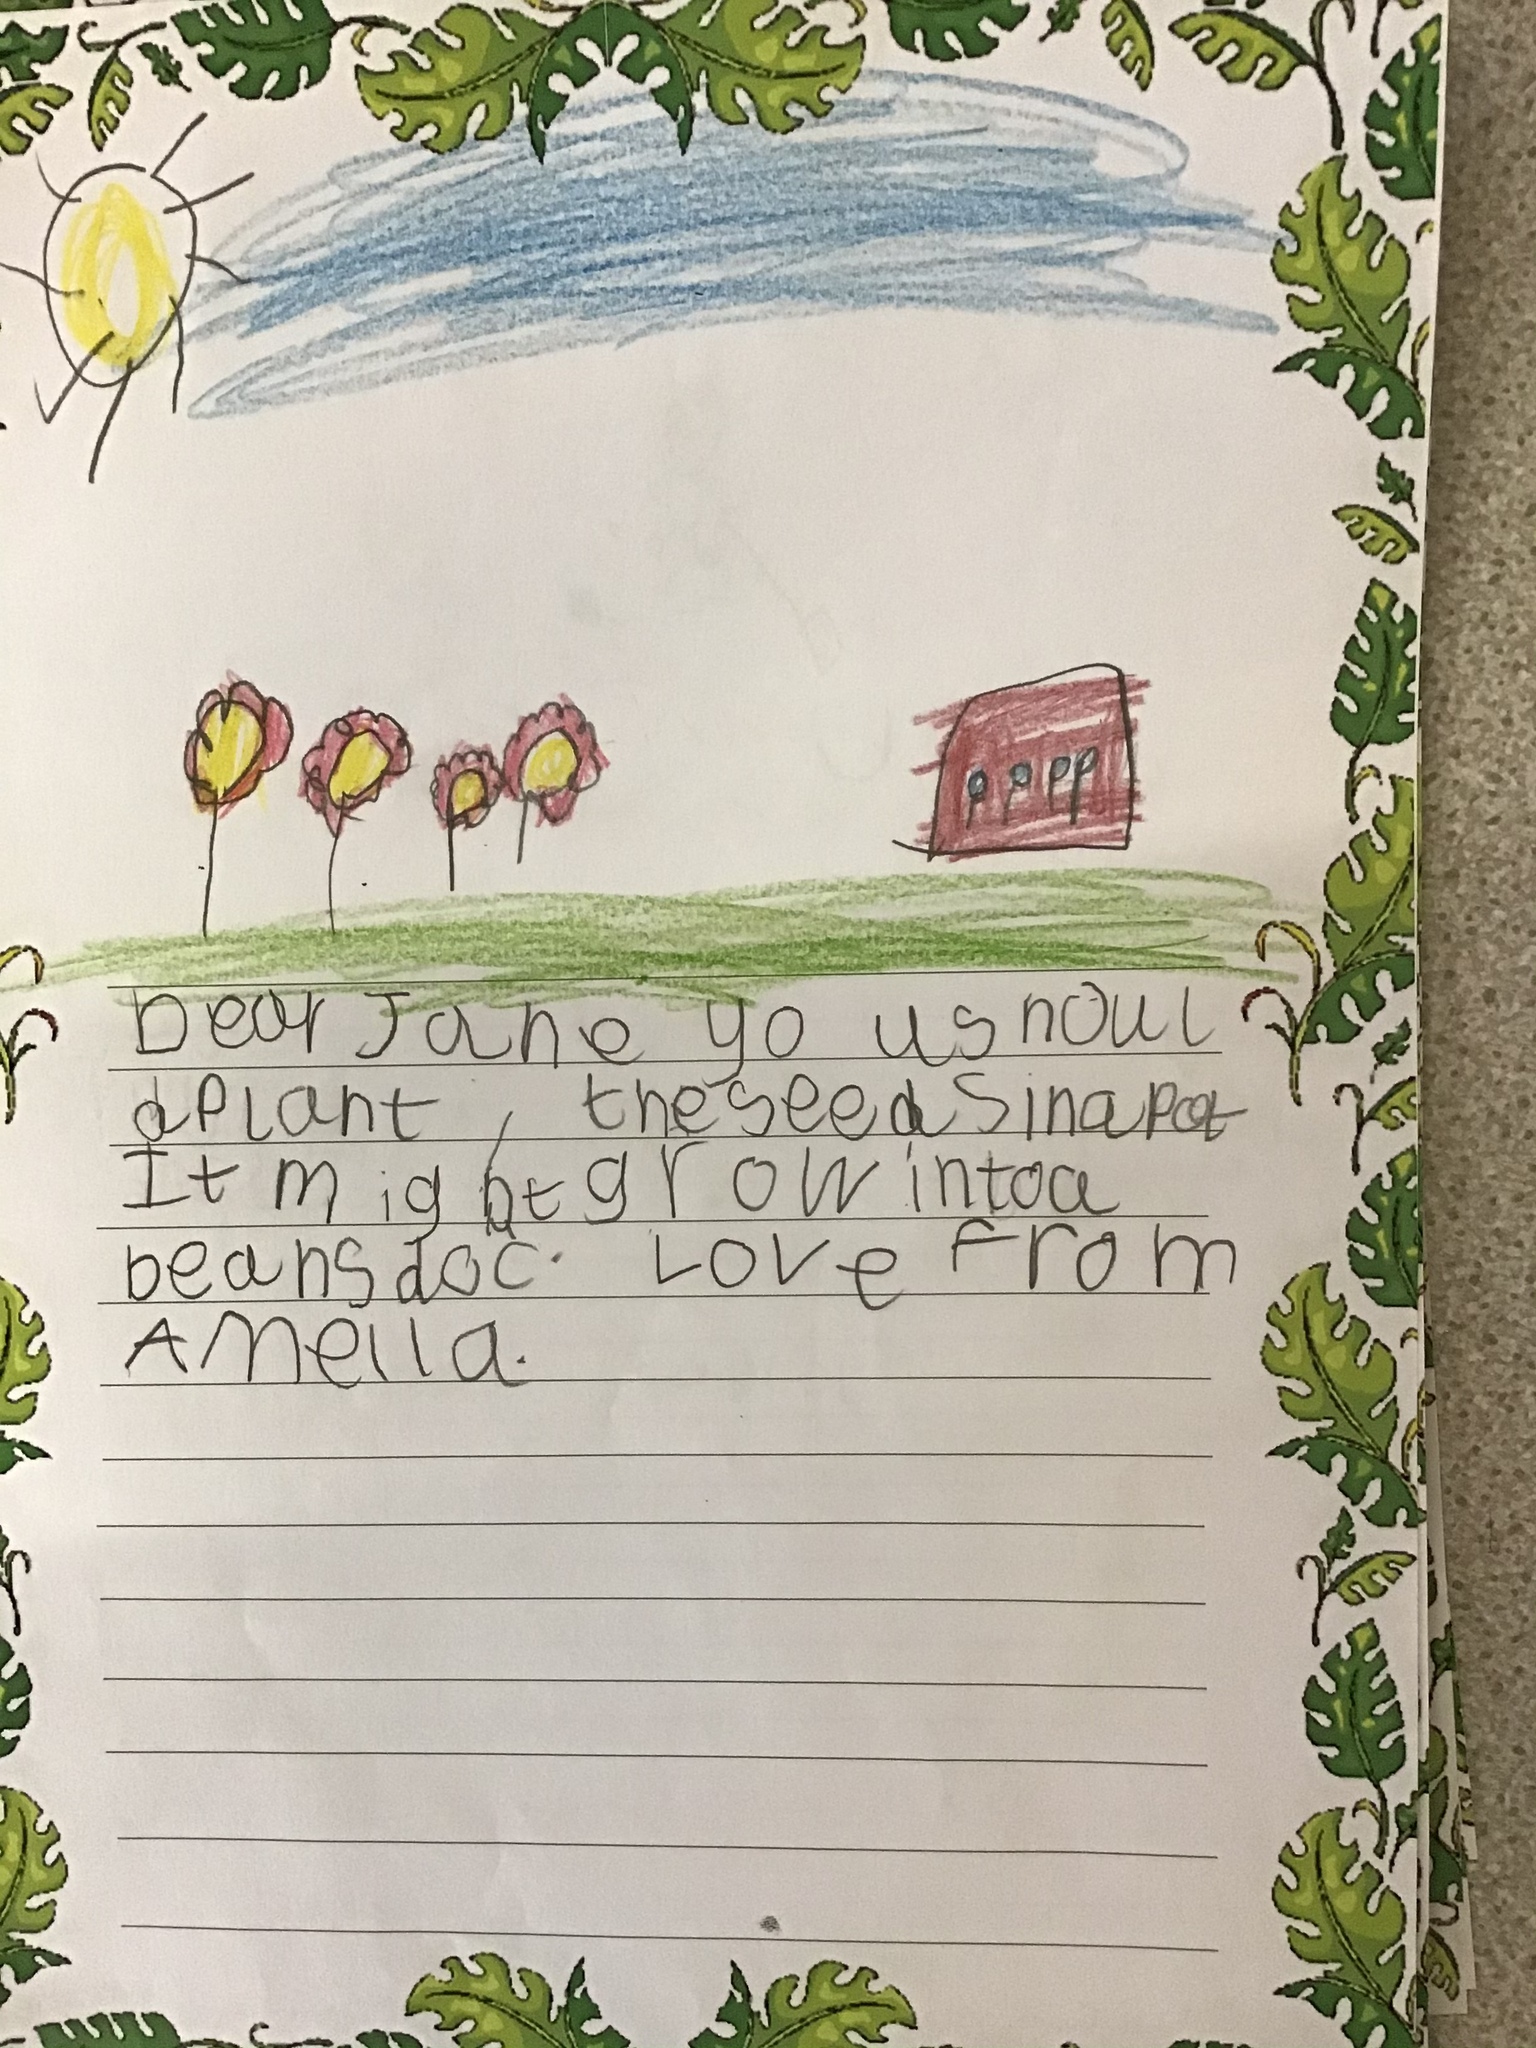 Dear Jane yo usnoul
dPlant, theseedSinapot
It might grow intoa
beansdoc. Love From
Amella.